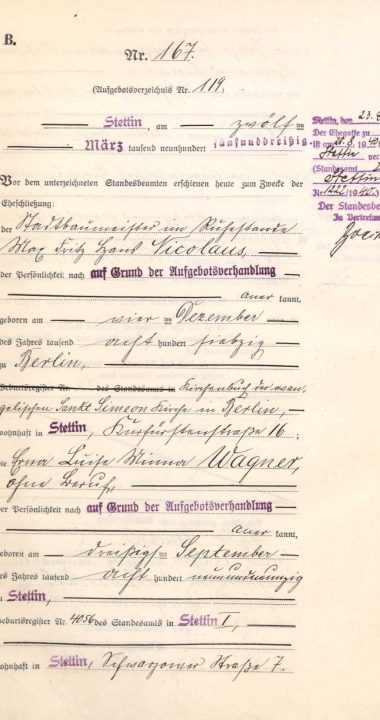 B.
Nr. 167.
(Aufgebotsverzeichnis Nr. 119)
Stettin, am zwölften
März tausend neunhundert fünfunddreißig
Vor dem unterzeichneten Standesbeamten erschienen heute zum Zwecke der
Eheschließung:
der Stadtbaumeister im Ruhestande
Max Fritz Hans Nicolaus,
der Persönlichkeit nach auf Grund der Aufgebotsverhandlung
anerkannt,
geboren am vier ten Dezember
des Jahres tausend acht hundert siebzig
zu Berlin,
Geburtsregister Nr. des Standesamts in Kirchenbuch der evan-
gelischen Sankt Simeon Kirche in Berlin,
wohnhaft in Stettin, Kurfürstenstraße 16;
die Erna Luise Minna Wagner,
ohne Beruf,
der Persönlichkeit nach auf Grund der Aufgebotsverhandlung
anerkannt,
geboren am dreißigsten September
des Jahres tausend acht hundert neunundneunzig
zu Stettin,
Geburtsregister Nr. 4056 des Standesamts in Stettin I,
wohnhaft in Stettin, Schwarzower Straße 7.
Stettin, den 23.
Der Ehegatte zu
ist am 1940
Stettin ver
(Standesamt
Stettin
Nr. 1222/1940
Der Standesbe
In Vertretun